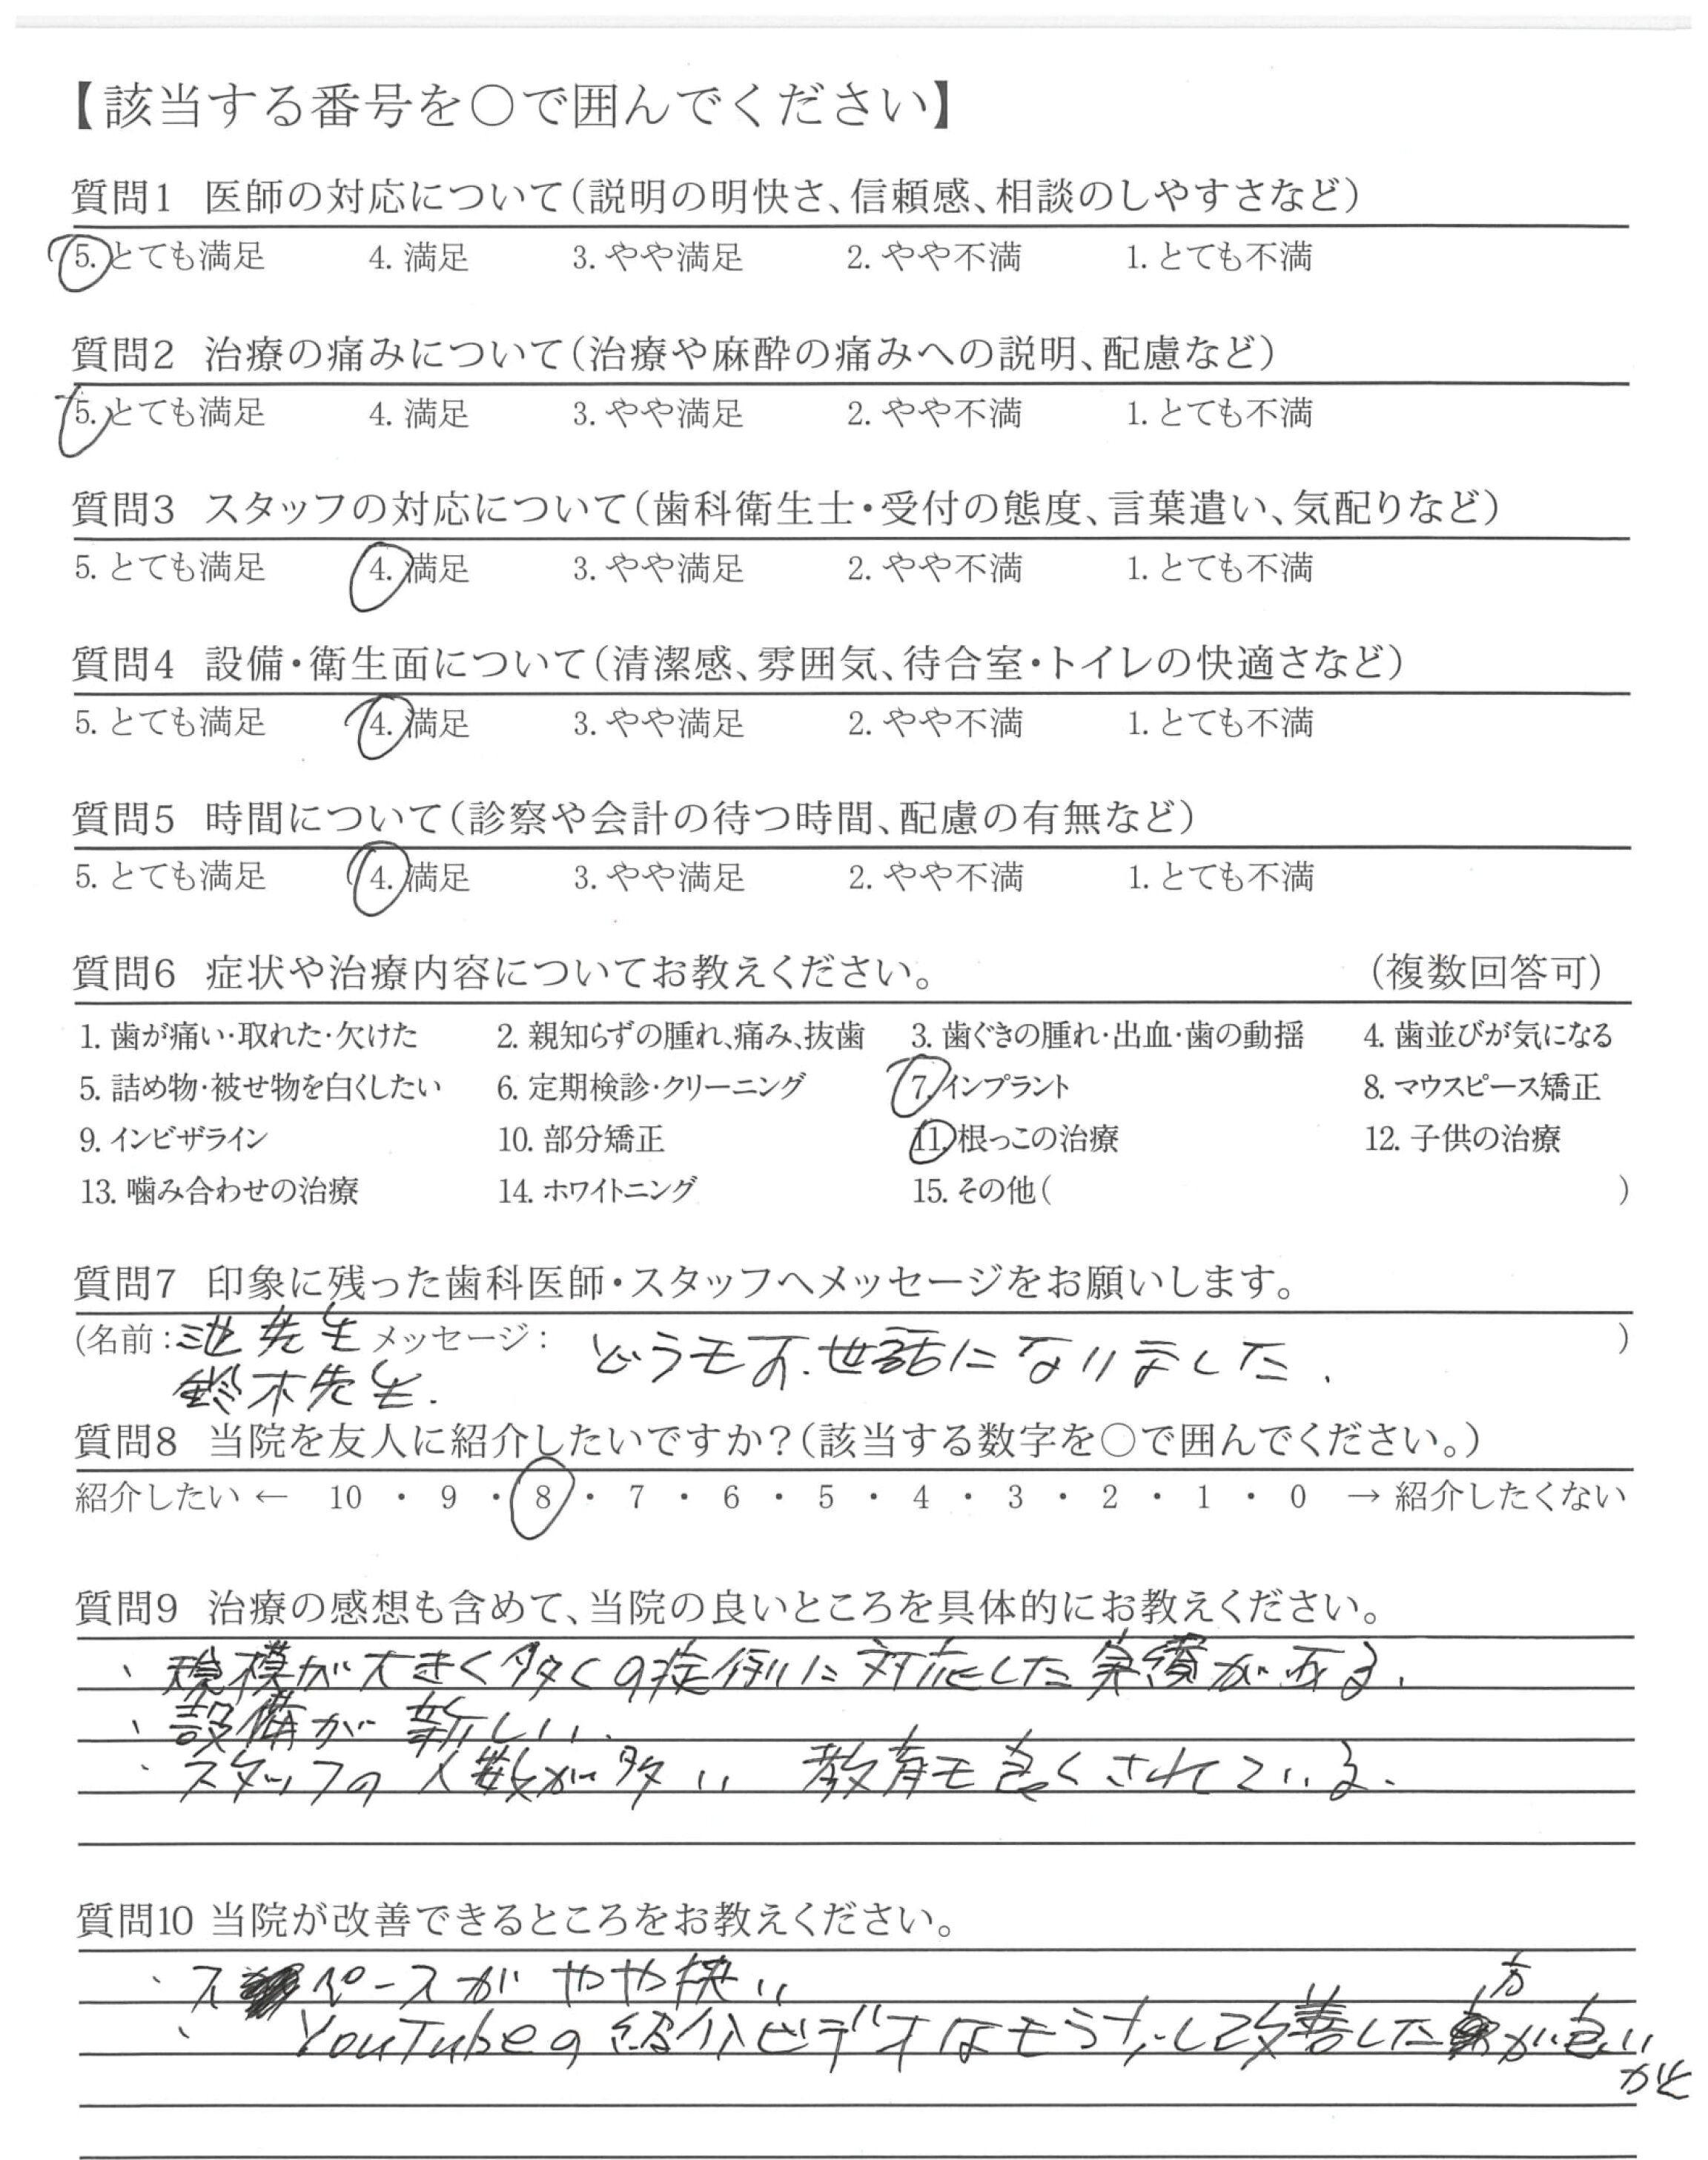 【該当する番号を○で囲んでください】
質問1 医師の対応について(説明の明快さ、信頼感、相談のしやすさなど)
5. とても満足 4. 満足 3. やや満足 2. やや不満 1. とても不満
質問2 治療の痛みについて(治療や麻酔の痛みへの説明、配慮など)
5. とても満足 4. 満足 3. やや満足 2. やや不満 1. とても不満
質問3 スタッフの対応について(歯科衛生士・受付の態度、言葉遣い、気配りなど)
5. とても満足 4. 満足 3. やや満足 2. やや不満 1. とても不満
質問4 設備・衛生面について(清潔感、雰囲気、待合室・トイレの快適さなど)
5. とても満足 4. 満足 3. やや満足 2. やや不満 1. とても不満
質問5 時間について(診察や会計の待つ時間、配慮の有無など)
5. とても満足 4. 満足 3. やや満足 2. やや不満 1. とても不満
質問6 症状や治療内容についてお教えください。 (複数回答可)
1. 歯が痛い・取れた・欠けた 2. 親知らずの腫れ、痛み、抜歯 3. 歯ぐきの腫れ・出血・歯の動揺 4. 歯並びが気になる
5. 詰め物・被せ物を白くしたい 6. 定期検診・クリーニング 7. インプラント 8. マウスピース矯正
9. インビザライン 10. 部分矯正 11. 根っこの治療 12. 子供の治療
13. 噛み合わせの治療 14. ホワイトニング 15. その他( )
質問7 印象に残った歯科医師・スタッフへメッセージをお願いします。
(名前:池先生 メッセージ: どうもお世話になりました. )
鈴木先生.
質問8 当院を友人に紹介したいですか?(該当する数字を○で囲んでください。)
紹介したい ← 10 ・ 9 ・ 8 ・ 7 ・ 6 ・ 5 ・ 4 ・ 3 ・ 2 ・ 1 ・ 0 → 紹介したくない
質問9 治療の感想も含めて、当院の良いところを具体的にお教えください。
、規模が大きく多くの症例に対応した実績がある.
、設備が新しい.
・スタッフの人数が多い 教育も良くされている.
質問10 当院が改善できるところをお教えください。
、スペースがやや狭い
、YouTubeの紹介ビデオはもう少し改善した方が良い
かと